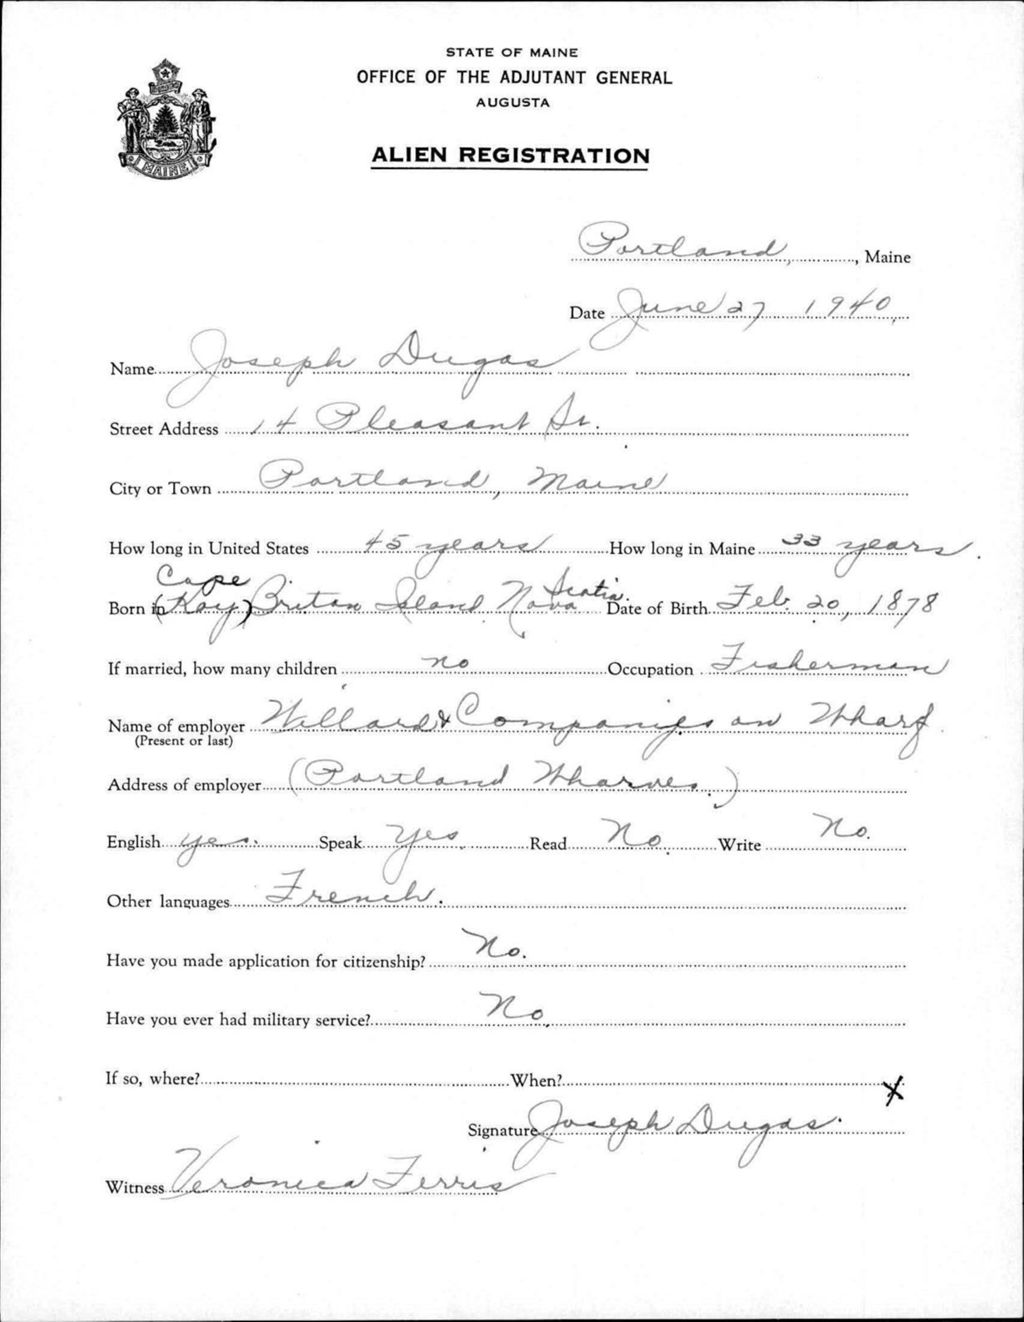 STATE OF MAINE
OFFICE OF THE ADJUTANT GENERAL
AUGUSTA
ALIEN REGISTRATION
MAINE
Portland, Maine
Date June 27 1940
Name Joseph Dugas
Street Address 14 Pleasant St.
City or Town Portland, Maine
How long in United States 45 years How long in Maine 33 years.
Born in Cape (Kay) Briton Island Nova Scotia. Date of Birth Feb. 20, 1878
If married, how many children no Occupation Fisherman
Name of employer Willard & Companies on Wharf
(Present or last)
Address of employer (Portland Wharves.)
English yes. Speak Yes. Read No. Write No.
Other languages French.
Have you made application for citizenship? No.
Have you ever had military service? No.
If so, where? When?
X
Signature Joseph Dugas.
Witness Veronica Ferris